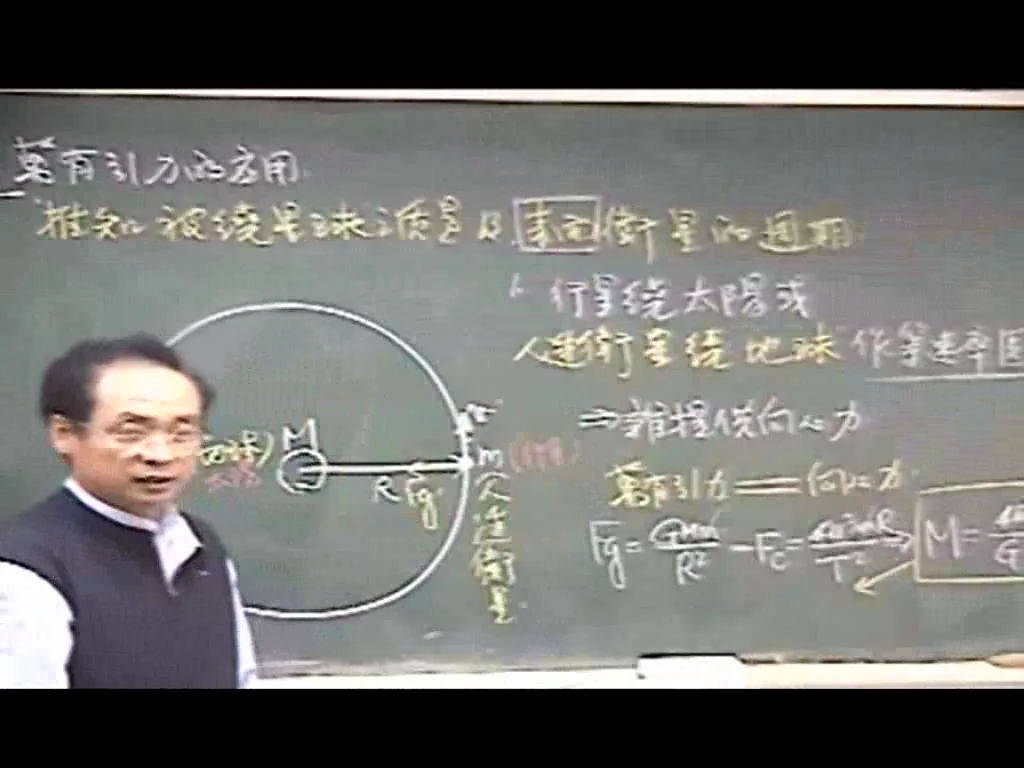 萬有引力的應用
推知被繞星球之質量及表面衛星的週期
1. 行星繞太陽或
人造衛星繞地球作等速率圓
⇒誰提供向心力
萬有引力=向心力
Fg=GMm/R²=Fc=4π²mR/T²
M=
G
M
地球)
太陽
R
Fg
m(行星)
人造衛星